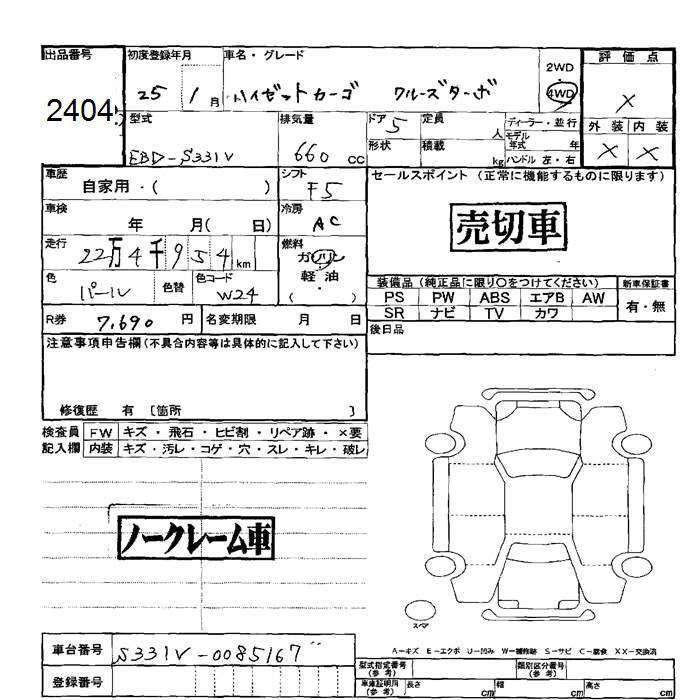 出品番号 初度登録年月 車名・グレード 評価点
2404 25 1月 ハイゼットカーゴ クルーズターボ 2WD 4WD X
型式 排気量 ドア 定員 ディーラー・並行 外装 内装
EBD-S331V 660 cc 5 人 モデル年式 年 X X
形状 積載 kg ハンドル 左・右
車歴 シフト セールスポイント (正常に機能するものに限ります)
自家用・( ) F5
車検 冷房
年 月( 日) AC 売切車
走行 燃料
22万4千954km ガソリン
色 色替 色コード 軽油
パール W24 ( ・ )
装備品(純正品に限り○をつけてください) 新車保証書
PS PW ABS エアB AW 有・無
SR ナビ TV カワ
R券 7,690 円 名変期限 月 日
後日品
注意事項申告欄(不具合内容等は具体的に記入して下さい)
修復歴 有 [箇所 ]
検査員 FW キズ・飛石・ヒビ割・リペア跡・×要
記入欄 内装 キズ・汚レ・コゲ・穴・スレ・キレ・破レ
ノークレーム車
スペア
A-キズ E-エクボ U-凹み W-補修跡 S-サビ C-腐食 XX-交換済
車台番号 S331V-0085167
型式指定番号(参考) 類別区分番号(参考)
登録番号
車庫証明用(参考) 長さ cm 幅 cm 高さ cm